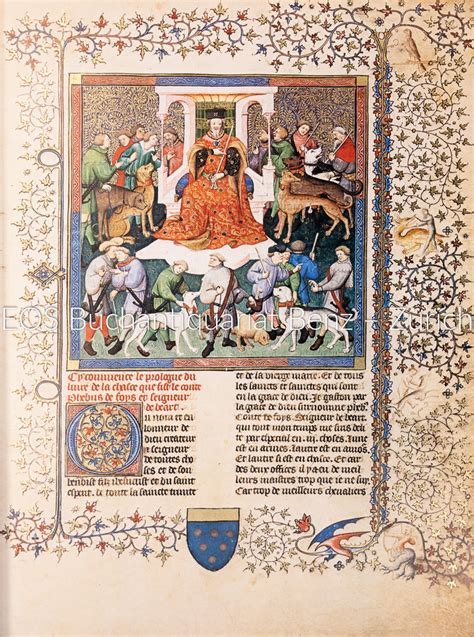 EOS Buchantiquariat Benz - Zürich
Cy commence le prologue du
livre de la chasce que fist le conte
Phebus de foys et seigneur
de beart.
nom et en
honneur de
dieu createur
et seigneur
de toutes cho
ses et de son
benoist filz et du saint
esprit. de toute la saincte trinite
et de la vierge marie. Et de tous
les saincts et sainctes qui sont
en la grace de dieu. Je gaston par
la grace de dieu surnomme pheb'
Conte de foys. Seigneur de beart.
qui tout mon temps me suis delit
te par especial en .iii. choses. Lune
est en armes. Lautre est en amours
Et lautre si est en chasce. Et car
des deux offices il y a eu de meil
leurs maistres trop que je ne suy
Car trop de meilleurs chevaliers